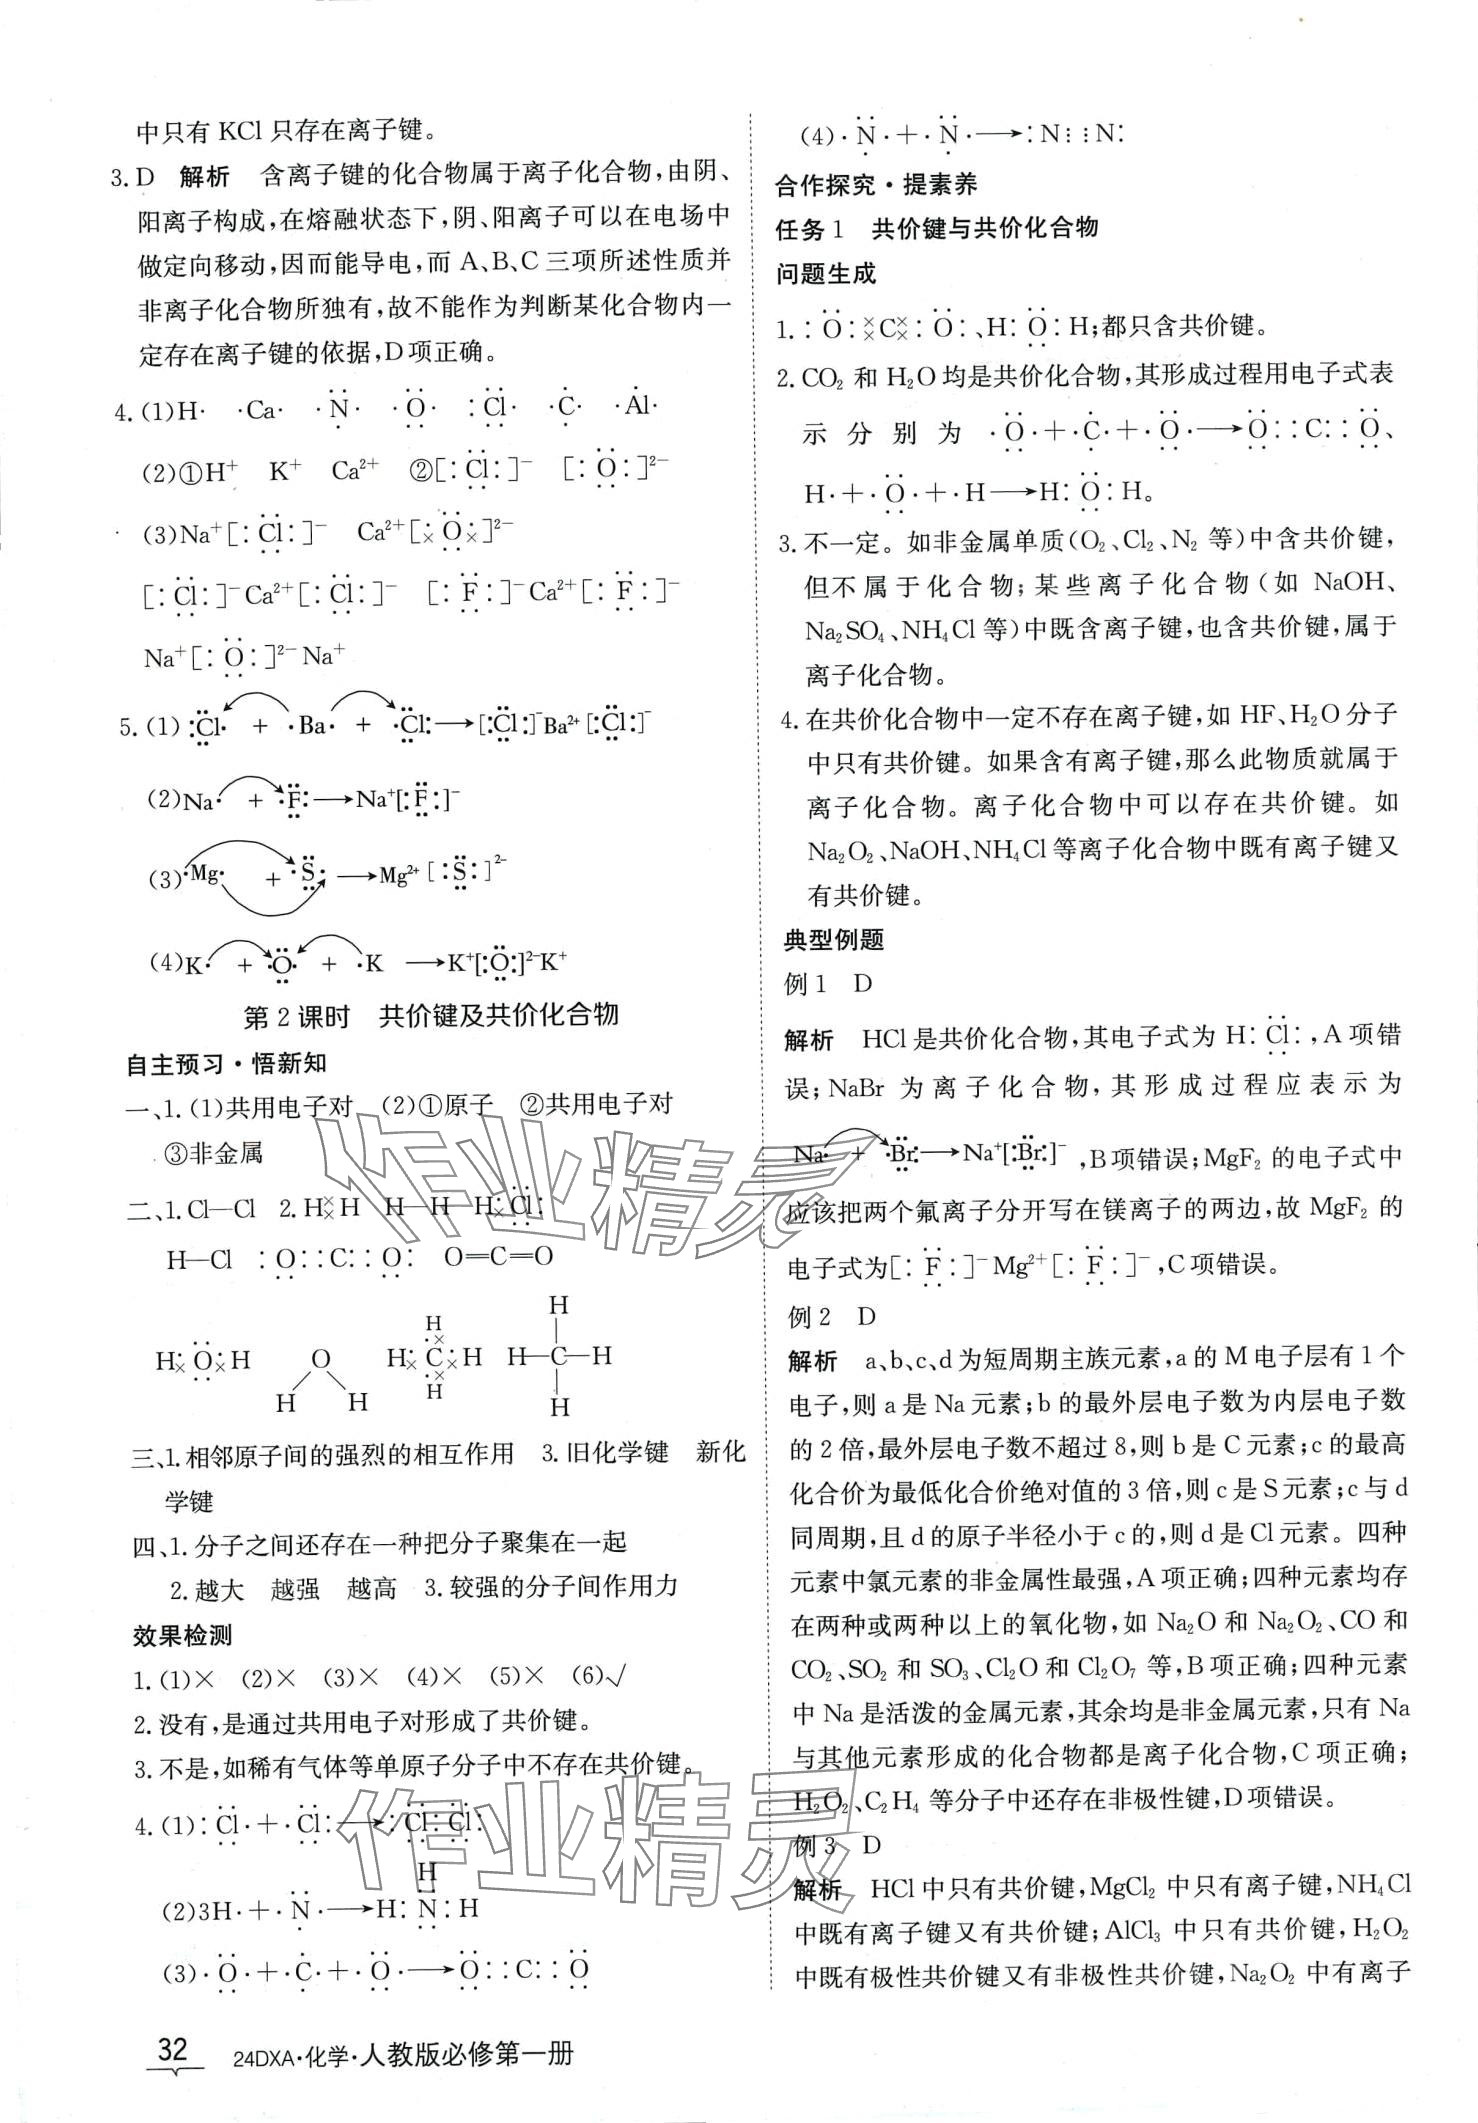 中只有 KCl 只存在离子键。
3. D 解析 含离子键的化合物属于离子化合物,由阴、
阳离子构成,在熔融状态下,阴、阳离子可以在电场中
做定向移动,因而能导电,而 A、B、C 三项所述性质并
非离子化合物所独有,故不能作为判断某化合物内一
定存在离子键的依据,D 项正确。
4. (1)H· ·Ca· ·N· ·O· :Cl· ·C· ·Al·
(2)①H⁺ K⁺ Ca²⁺ ②[:Cl:]⁻ [:O:]²⁻
(3)Na⁺[:Cl:]⁻ Ca²⁺[×O×]²⁻
[:Cl:]⁻Ca²⁺[:Cl:]⁻ [:F:]⁻Ca²⁺[:F:]⁻
Na⁺[:O:]²⁻Na⁺
5. (1) :Cl· + ·Ba· + ·Cl:→[:Cl:]⁻Ba²⁺[:Cl:]⁻
(2)Na· + ·F:→Na⁺[:F:]⁻
(3)·Mg· + ·S·→Mg²⁺[:S:]²⁻
(4)K· + ·O· + ·K →K⁺[:O:]²⁻K⁺
第 2 课时 共价键及共价化合物
自主预习·悟新知
一、1. (1)共用电子对 (2)①原子 ②共用电子对
③非金属
二、1. Cl—Cl 2. H×H H—H H×Cl:
H—Cl :O::C::O: O=C=O
H×O×H O H×C×H H—C—H
H H H H H H
三、1. 相邻原子间的强烈的相互作用 3. 旧化学键 新化
学键
四、1. 分子之间还存在一种把分子聚集在一起
2. 越大 越强 越高 3. 较强的分子间作用力
效果检测
1. (1)× (2)× (3)× (4)× (5)× (6)√
2. 没有,是通过共用电子对形成了共价键。
3. 不是,如稀有气体等单原子分子中不存在共价键。
4. (1):Cl·+·Cl:→:Cl:Cl:
H
(2)3H·+·N·→H:N:H
(3)·O·+·C·+·O·→O::C::O
32 24DXA·化学·人教版必修第一册
(4)·N·+·N·→:N⋮⋮N:
合作探究·提素养
任务 1 共价键与共价化合物
问题生成
1. :O:×C×:O:、H:O:H;都只含共价键。
2. CO₂ 和 H₂O 均是共价化合物,其形成过程用电子式表
示分别为 ·O·+·C·+·O·→O::C::O、
H·+·O·+·H→H:O:H。
3. 不一定。如非金属单质(O₂、Cl₂、N₂ 等)中含共价键,
但不属于化合物;某些离子化合物(如 NaOH、
Na₂SO₄、NH₄Cl 等)中既含离子键,也含共价键,属于
离子化合物。
4. 在共价化合物中一定不存在离子键,如 HF、H₂O 分子
中只有共价键。如果含有离子键,那么此物质就属于
离子化合物。离子化合物中可以存在共价键。如
Na₂O₂、NaOH、NH₄Cl 等离子化合物中既有离子键又
有共价键。
典型例题
例 1 D
解析 HCl 是共价化合物,其电子式为 H:Cl:,A 项错
误;NaBr 为离子化合物,其形成过程应表示为
Na· + ·Br:→Na⁺[:Br:]⁻,B 项错误;MgF₂ 的电子式中
应该把两个氟离子分开写在镁离子的两边,故 MgF₂ 的
电子式为[:F:]⁻Mg²⁺[:F:]⁻,C 项错误。
例 2 D
解析 a、b、c、d 为短周期主族元素,a 的 M 电子层有 1 个
电子,则 a 是 Na 元素;b 的最外层电子数为内层电子数
的 2 倍,最外层电子数不超过 8,则 b 是 C 元素;c 的最高
化合价为最低化合价绝对值的 3 倍,则 c 是 S 元素;c 与 d
同周期,且 d 的原子半径小于 c 的,则 d 是 Cl 元素。四种
元素中氯元素的非金属性最强,A 项正确;四种元素均存
在两种或两种以上的氧化物,如 Na₂O 和 Na₂O₂、CO 和
CO₂、SO₂ 和 SO₃、Cl₂O 和 Cl₂O₇ 等,B 项正确;四种元素
中 Na 是活泼的金属元素,其余均是非金属元素,只有 Na
与其他元素形成的化合物都是离子化合物,C 项正确;
H₂O₂、C₂H₄ 等分子中还存在非极性键,D 项错误。
例 3 D
解析 HCl 中只有共价键,MgCl₂ 中只有离子键,NH₄Cl
中既有离子键又有共价键;AlCl₃ 中只有共价键,H₂O₂
中既有极性共价键又有非极性共价键,Na₂O₂ 中有离子
作业精灵
作业精灵